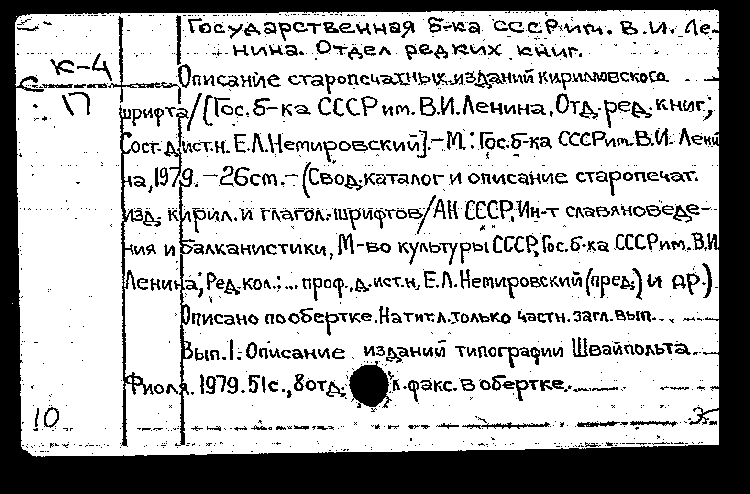 Государственная б-ка СССР им. В.И. Ле-
нина. Отдел редких книг.
К-4
С
П
Описание старопечатных изданий кирилловского
шрифта/[Гос.б-ка СССР им. В.И.Ленина, Отд. ред. книг;
Сост. д.ист.н. Е.Л.Немировский].-М.: Гос.б-ка СССР им. В.И. Лени
на, 1979. -26см.-(Свод. каталог и описание старопечат.
изд. кирил. и глагол. шрифтов/АН СССР, Ин-т славяноведе-
ния и балканистики, М-во культуры СССР, Гос.б-ка СССР им. В.И
Ленина; Ред.кол.:... проф., д.ист.н. Е.Л.Немировский (пред.) и др.)
Описано по обертке. На тит.л. только частн. загл. вып.
Вып.1. Описание изданий типографии Швайпольта
Фиоля. 1979. 51с., 8 отд. л. факс. в обертке.
10
Э